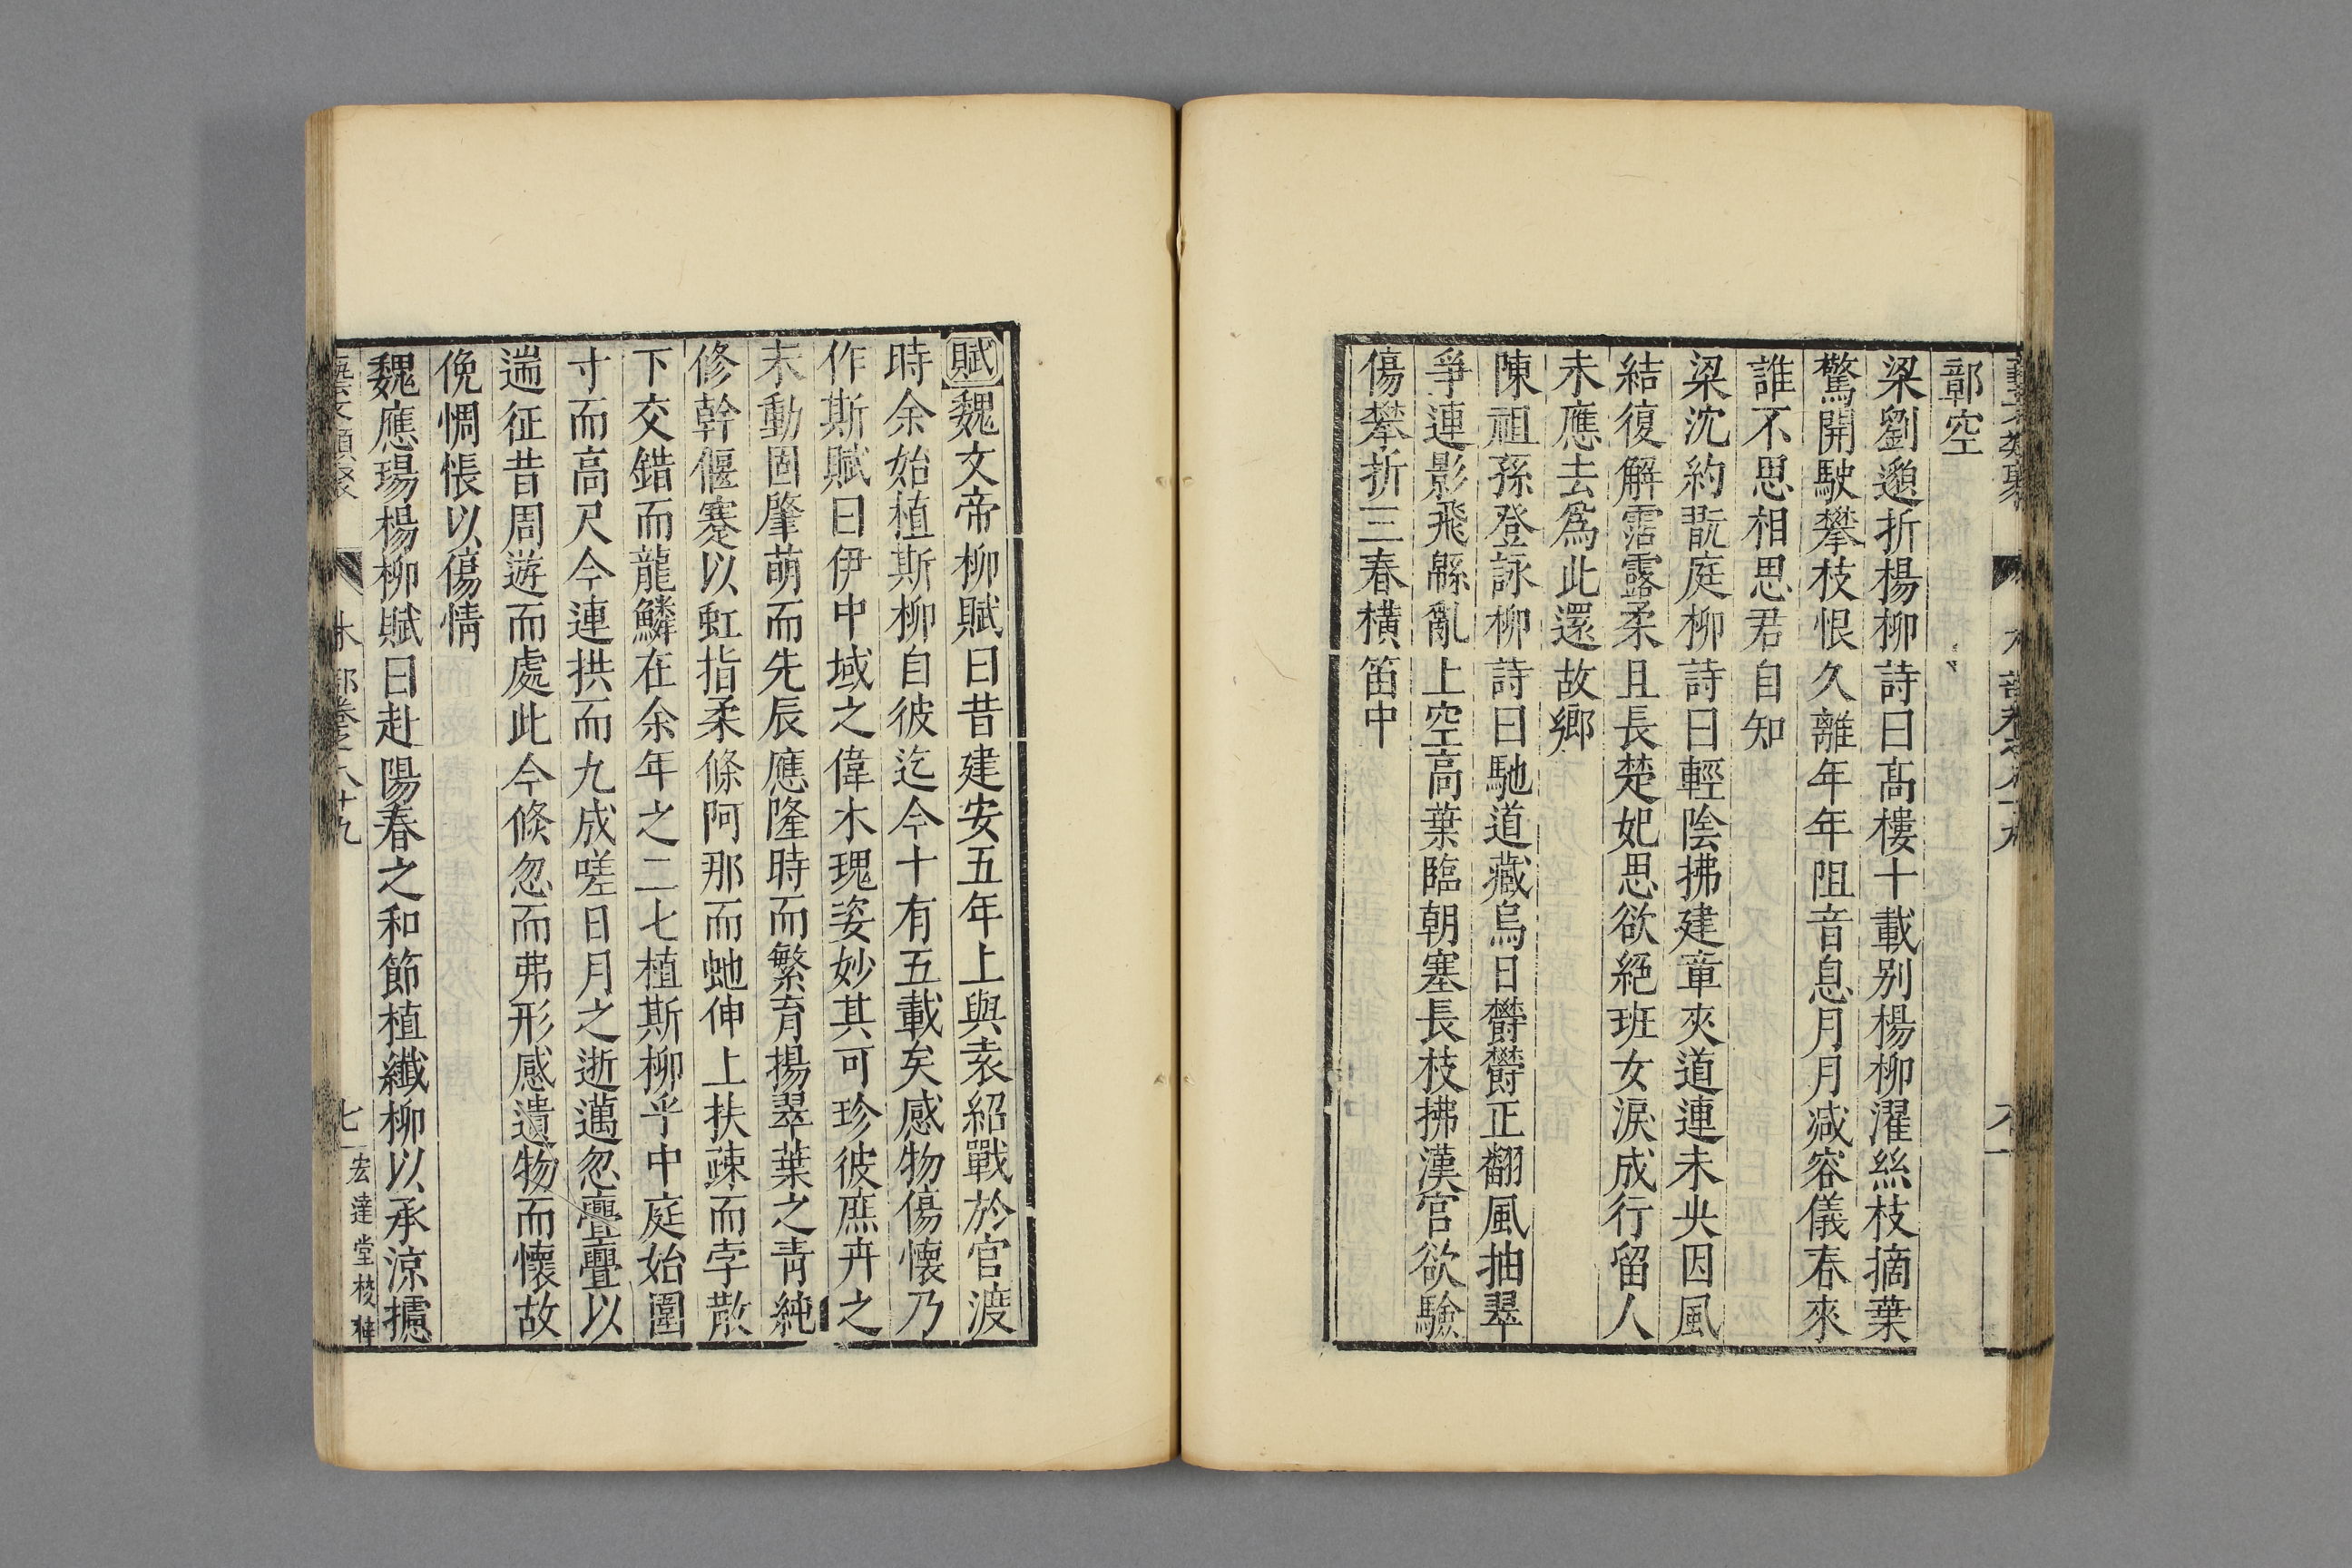 鄣空
梁劉邈折楊柳詩曰髙樓十載别楊柳濯絲枝摘葉
驚開駛攀枝恨久離年年阻音息月月减容儀春來
誰不思相思君自知
梁沈約翫庭柳詩曰輕陰拂建章夾道連未央因風
結復解霑露柔且長楚妃思欲絕班女淚成行留人
未應去爲此還故鄉
陳祖孫登詠柳詩曰馳道藏烏日欝欝正翻風抽翠
爭連影飛緜亂上空高葉臨朝塞長枝拂漢宫欲驗
傷攀折三春橫笛中
賦魏文帝柳賦曰昔建安五年上與袁紹戰於官渡
時余始植斯柳自彼迄今十有五載矣感物傷懷乃
作斯賦曰伊中域之偉木瑰姿妙其可珍彼庶卉之
未動固肇萌而先辰應隆時而繁育揚翠葉之青純
修幹偃蹇以虹指柔條阿那而虵伸上扶疎而孛散
下交錯而龍鱗在余年之二七植斯柳乎中庭始圍
寸而高尺今連拱而九成嗟日月之逝邁忽亹亹以
遄征昔周遊而處此今倐忽而弗形感遺物而懷故
俛惆悵以傷情
魏應瑒楊柳賦曰赴陽春之和節植纖柳以承涼攄
木部卷之八十九
七
宏達堂校梓